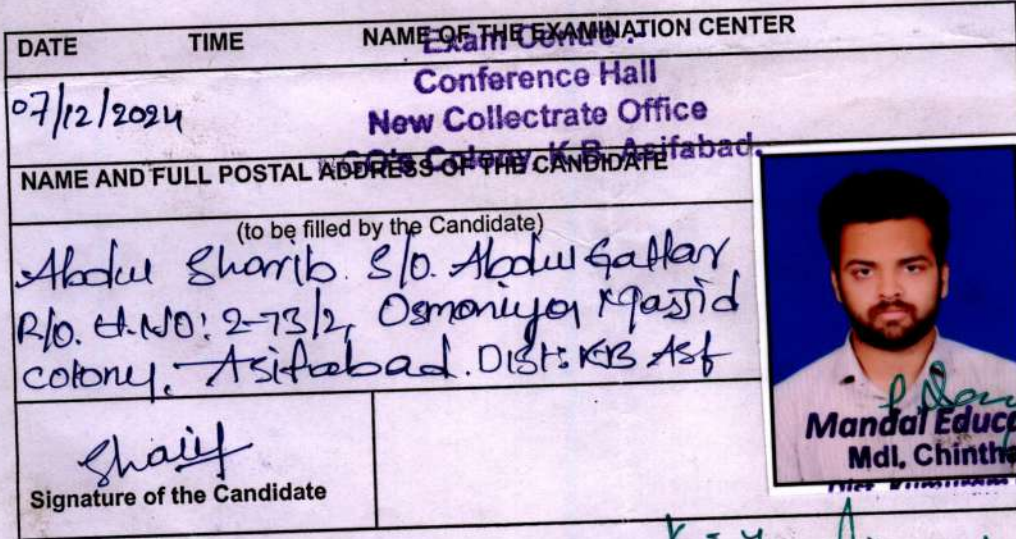 DATE TIME NAME OF THE EXAMINATION CENTER
Exam Centre :-
Conference Hall
07/12/2024
New Collectrate Office
Colony, K.B. Asifabad.
NAME AND FULL POSTAL ADDRESS OF THE CANDIDATE
(to be filled by the Candidate)
Abdul Sharib. S/O. Abdul Gaffar
R/O. H.NO: 2-73/2, Osmoniya Masjid
colony. Asifabad. Dist: KB Asf
Mandal Educ
Mdl, Chintha
Signature of the Candidate